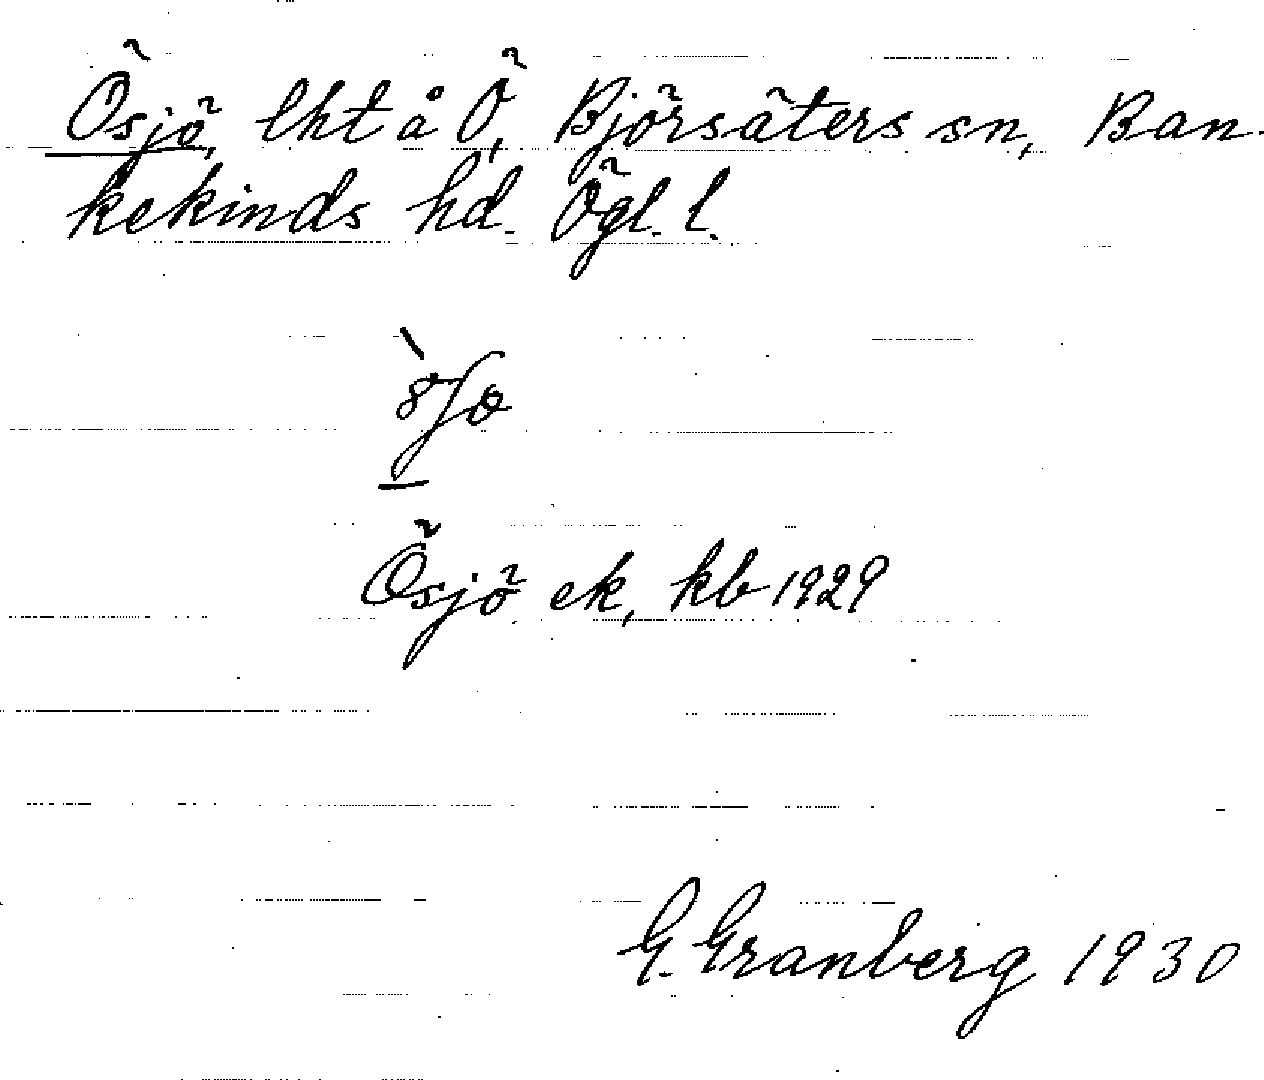 Ösjö, lht å Ö, Björsäters sn, Ban-
kekinds hd. Ögl. l.
Ösjö ek, kb 1929
G. Granberg 1930